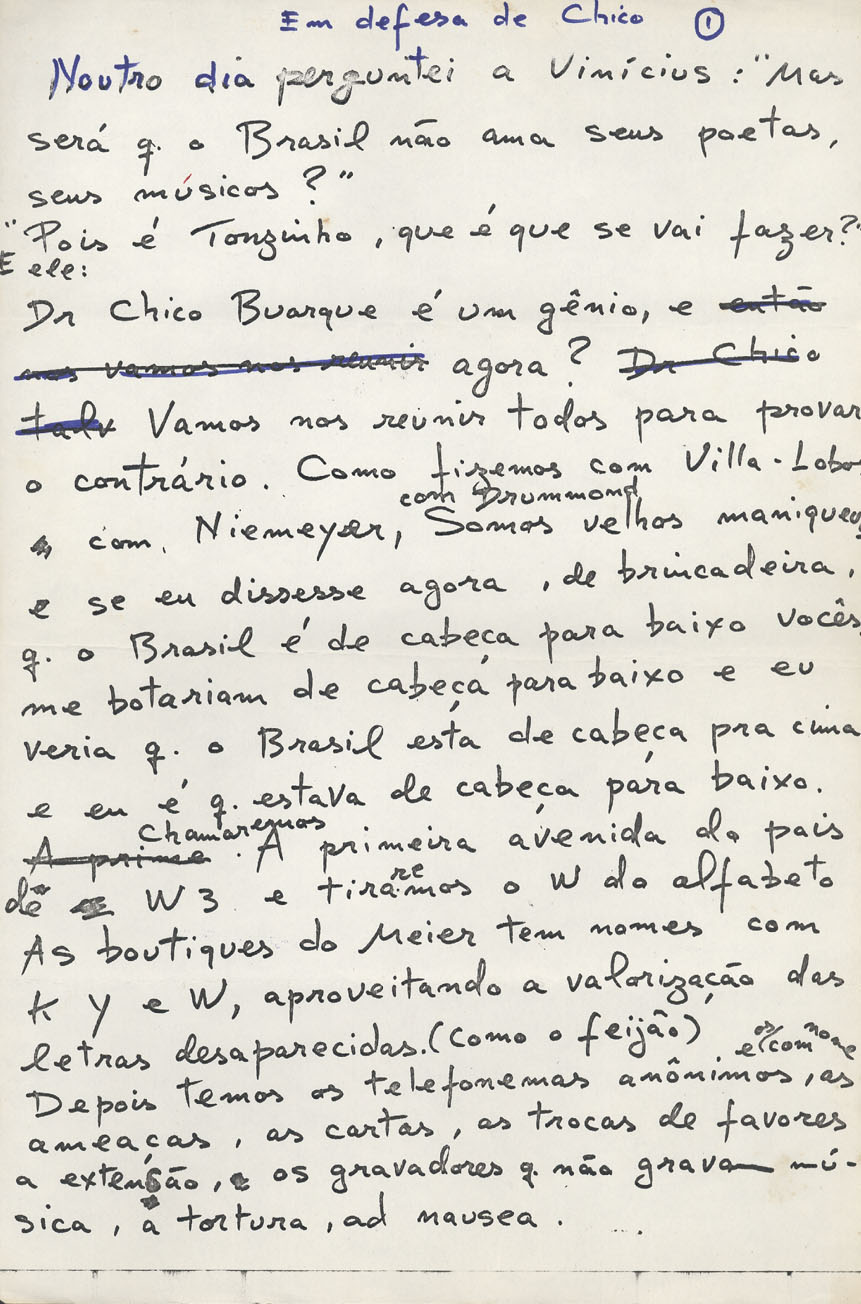 Em defesa de Chico ①
Noutro dia perguntei a Vinícius: "Mas
será q. o Brasil não ama seus poetas,
seus músicos?"
"Pois é Tonzinho, que é que se vai fazer?"
E ele:
Dr Chico Buarque é um gênio, e então
nos vamos nos reunir agora? Dr Chico
talv Vamos nos reunir todos para provar
o contrário. Como fizemos com Villa-Lobos
com Drummond,
com Niemeyer, Somos velhos maniqueus,
e se eu dissesse agora, de brincadeira,
q. o Brasil é de cabeça para baixo vocês
me botariam de cabeça para baixo e eu
veria q. o Brasil está de cabeça pra cima
e eu é q. estava de cabeça para baixo.
chamaremos
A prime. A primeira avenida do país
re
de W3 e tiramos o W do alfabeto
As boutiques do Meier tem nomes com
K Y e W, aproveitando a valorização das
letras desaparecidas. (Como o feijão)
e os com nome
Depois temos os telefonemas anônimos, as
ameaças, as cartas, as trocas de favores
a extensão, e os gravadores q. não gravam mú-
sica, a tortura, ad nausea.